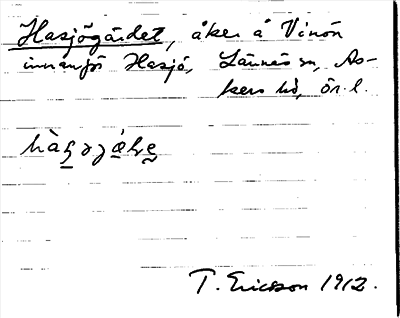 Hasjögärdet, åker å Vinön
innanför Hasjö, Lännäs sn, As-
kers hd, Ör. l.
T. Ericsson 1912.